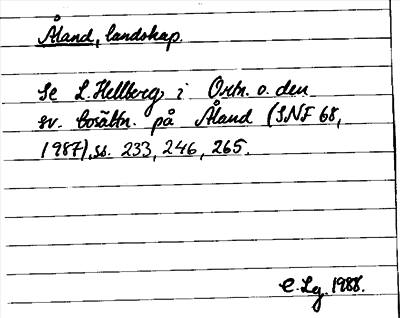 Åland, landskap.
Se L. Hellberg i Ortn. o. den
sv. bosättn. på Åland (SNF 68,
1987), ss. 233, 246, 265.
C. Lg. 1988.